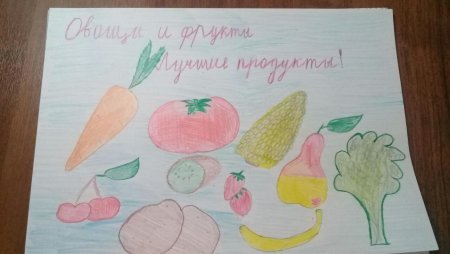 Овощи и фрукты
Лучшие продукты!